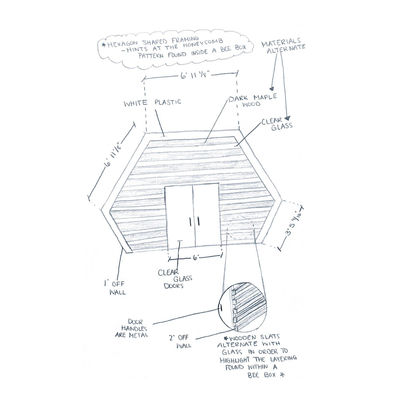 * HEXAGON SHAPED FRAMING
- HINTS AT THE HONEYCOMB
PATTERN FOUND INSIDE A BEE BOX
MATERIALS
ALTERNATE
6' 11 ½"
WHITE PLASTIC
DARK MAPLE
WOOD
CLEAR
GLASS
6' 11 ½"
3' 5 ¾"
6'
1" OFF
WALL
CLEAR
GLASS
DOORS
DOOR
HANDLES
ARE METAL
2" OFF
WALL
* WOODEN SLATS
ALTERNATE WITH
GLASS IN ORDER TO
HIGHLIGHT THE LAYERING
FOUND WITHIN A
BEE BOX *